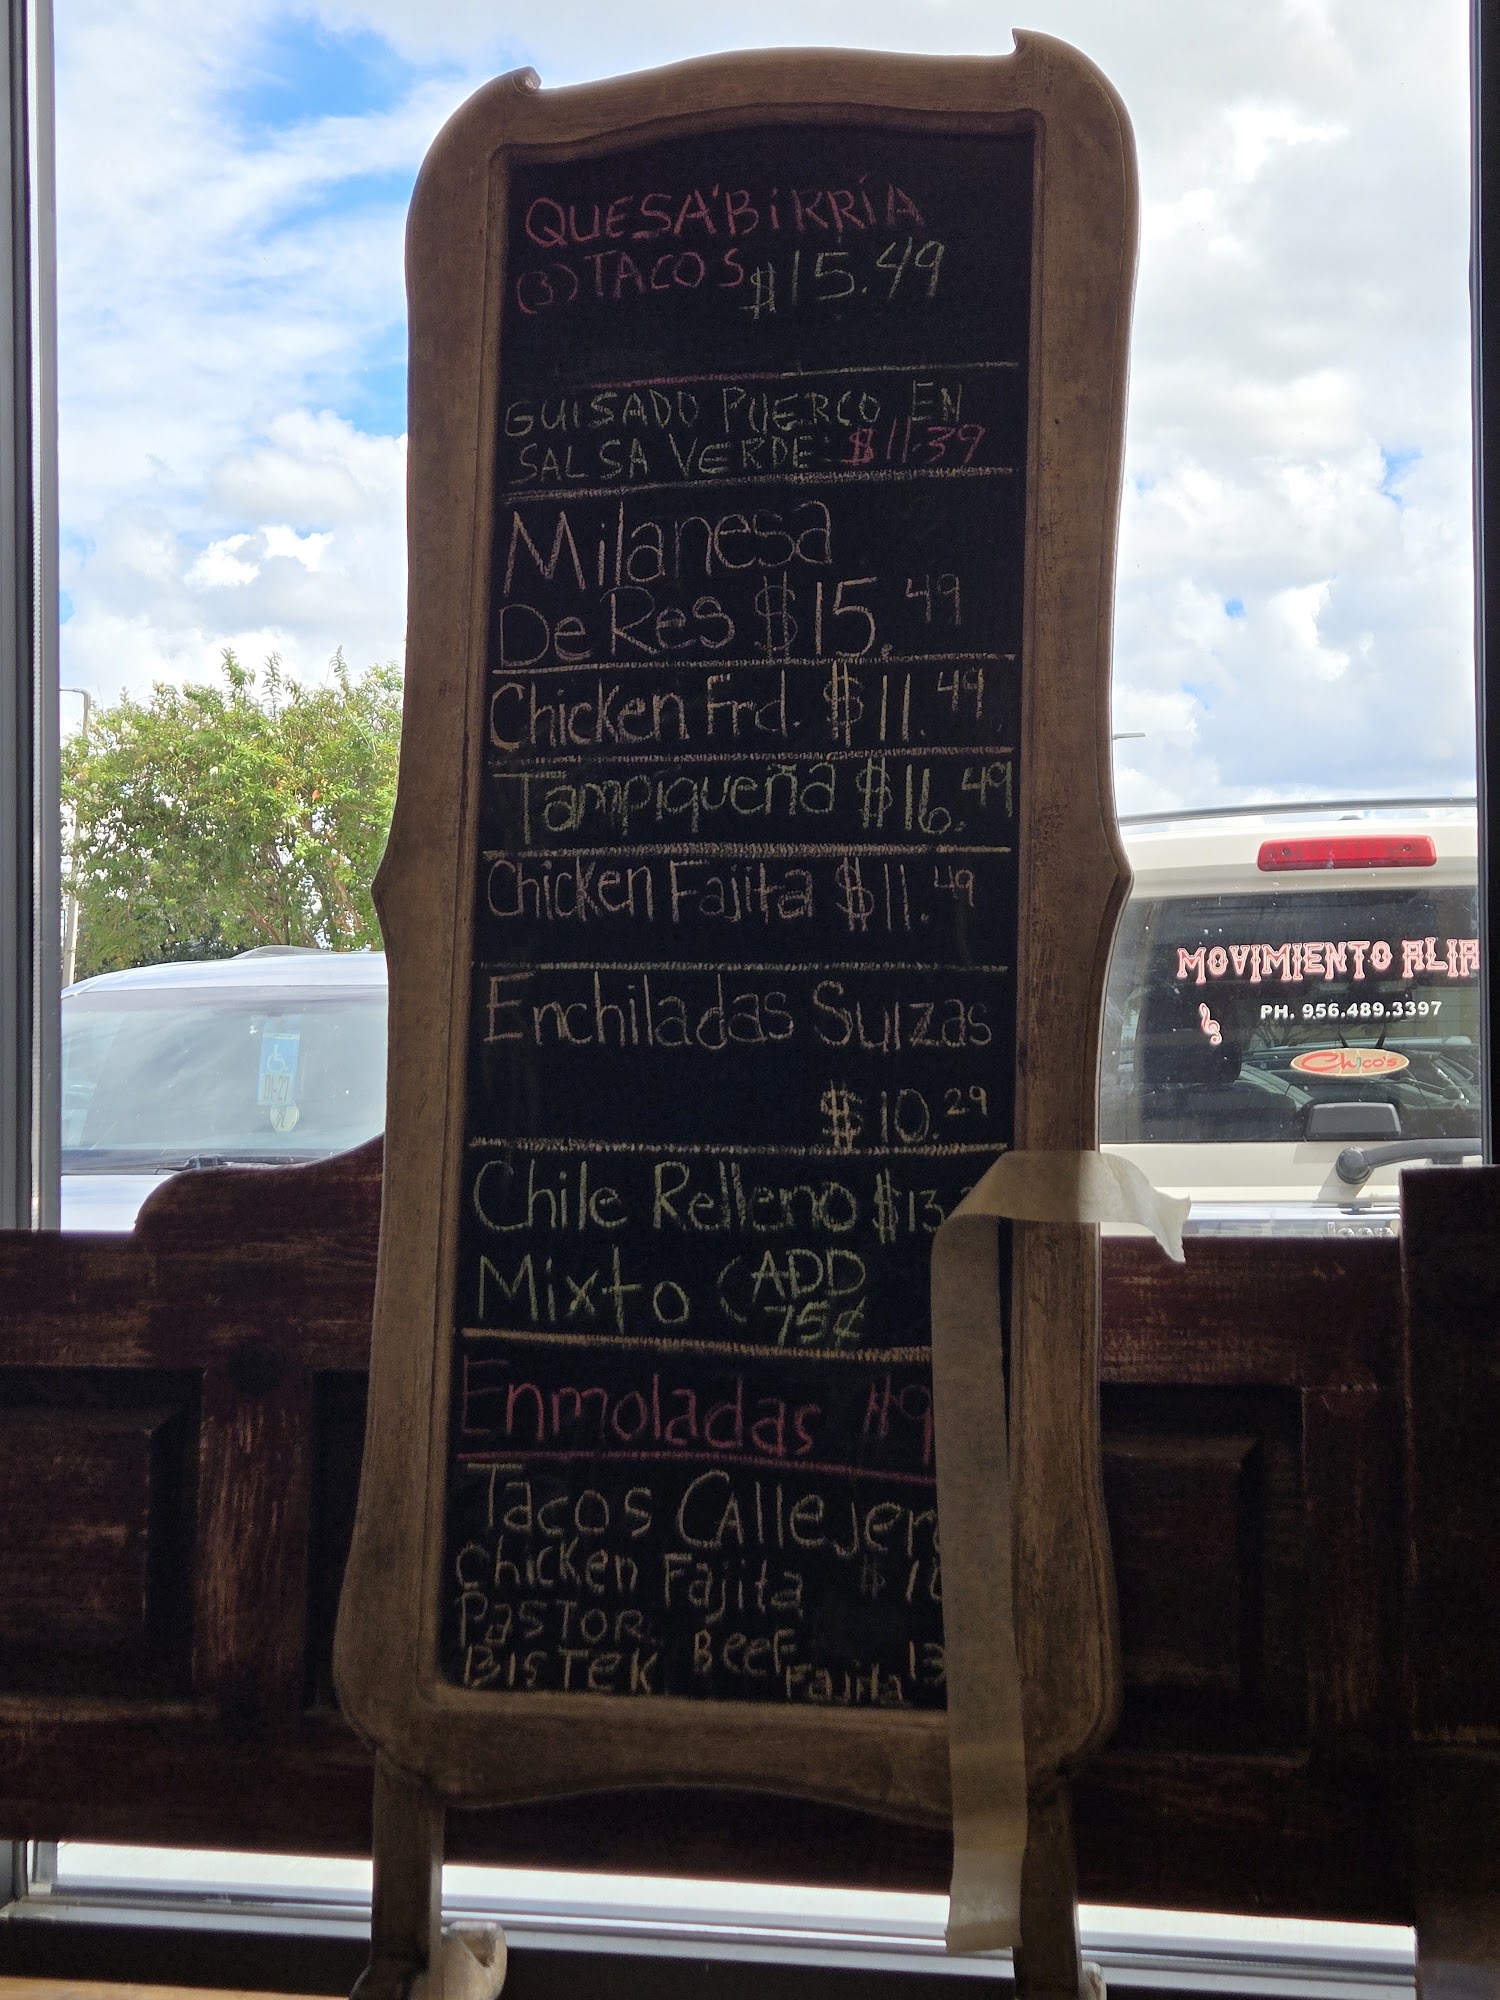 QUESA'BiRRíA
(3) TACOS $15.49
GUISADO PUERCO EN
SALSA VERDE: $11.39
Milanesa
De Res $15.49
Chicken Frd. $11.49
Tampiqueña $16.49
Chicken Fajita $11.49
Enchiladas Suizas
$10.29
Chile Relleno $13.
Mixto (ADD
75¢
Enmoladas $9
Tacos CAllejer
Chicken Fajita $
PASTOR
BISTEK Beef Fajita 13
MOVIMIENTO ALIA
PH. 956.489.3397
Chico's